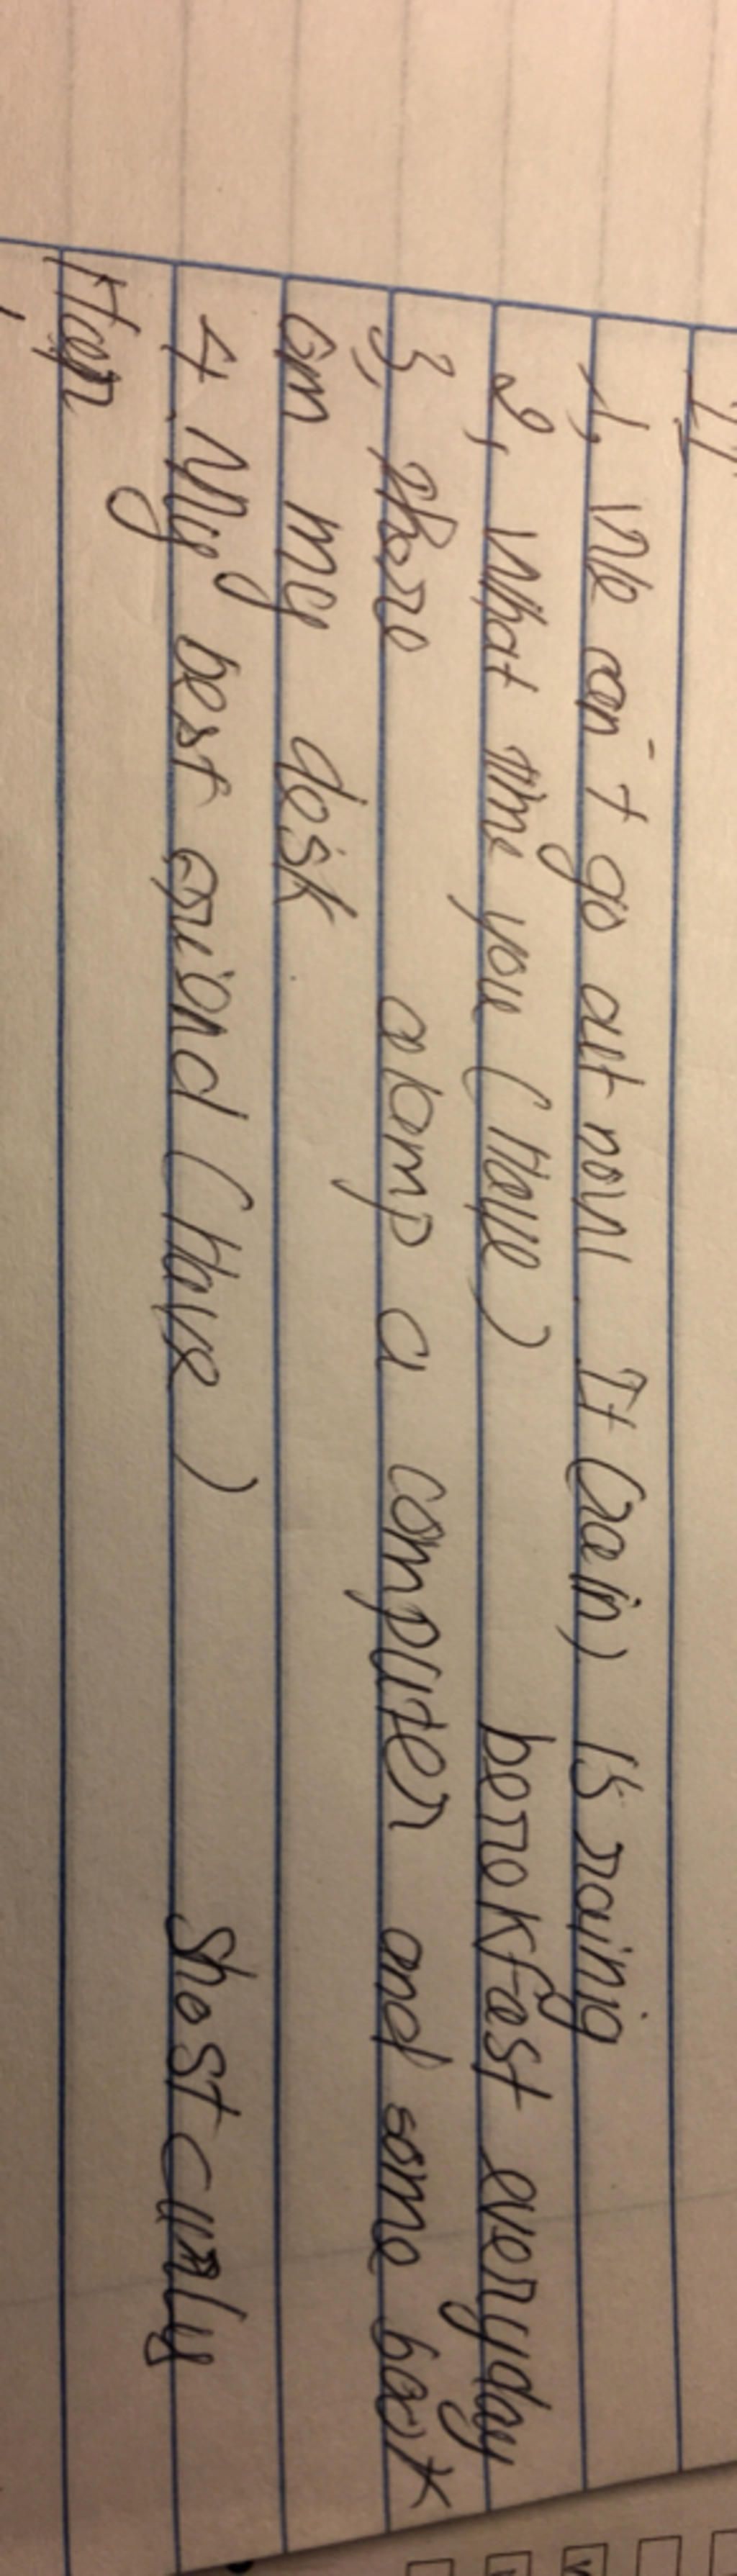 II
1, We can't go out now. It (rain) is raining
2, What time you (Have) berakfast everyday
3, there a lamp a computer and some book
on my desk
4. My best friend (Have) shost curly
Hair